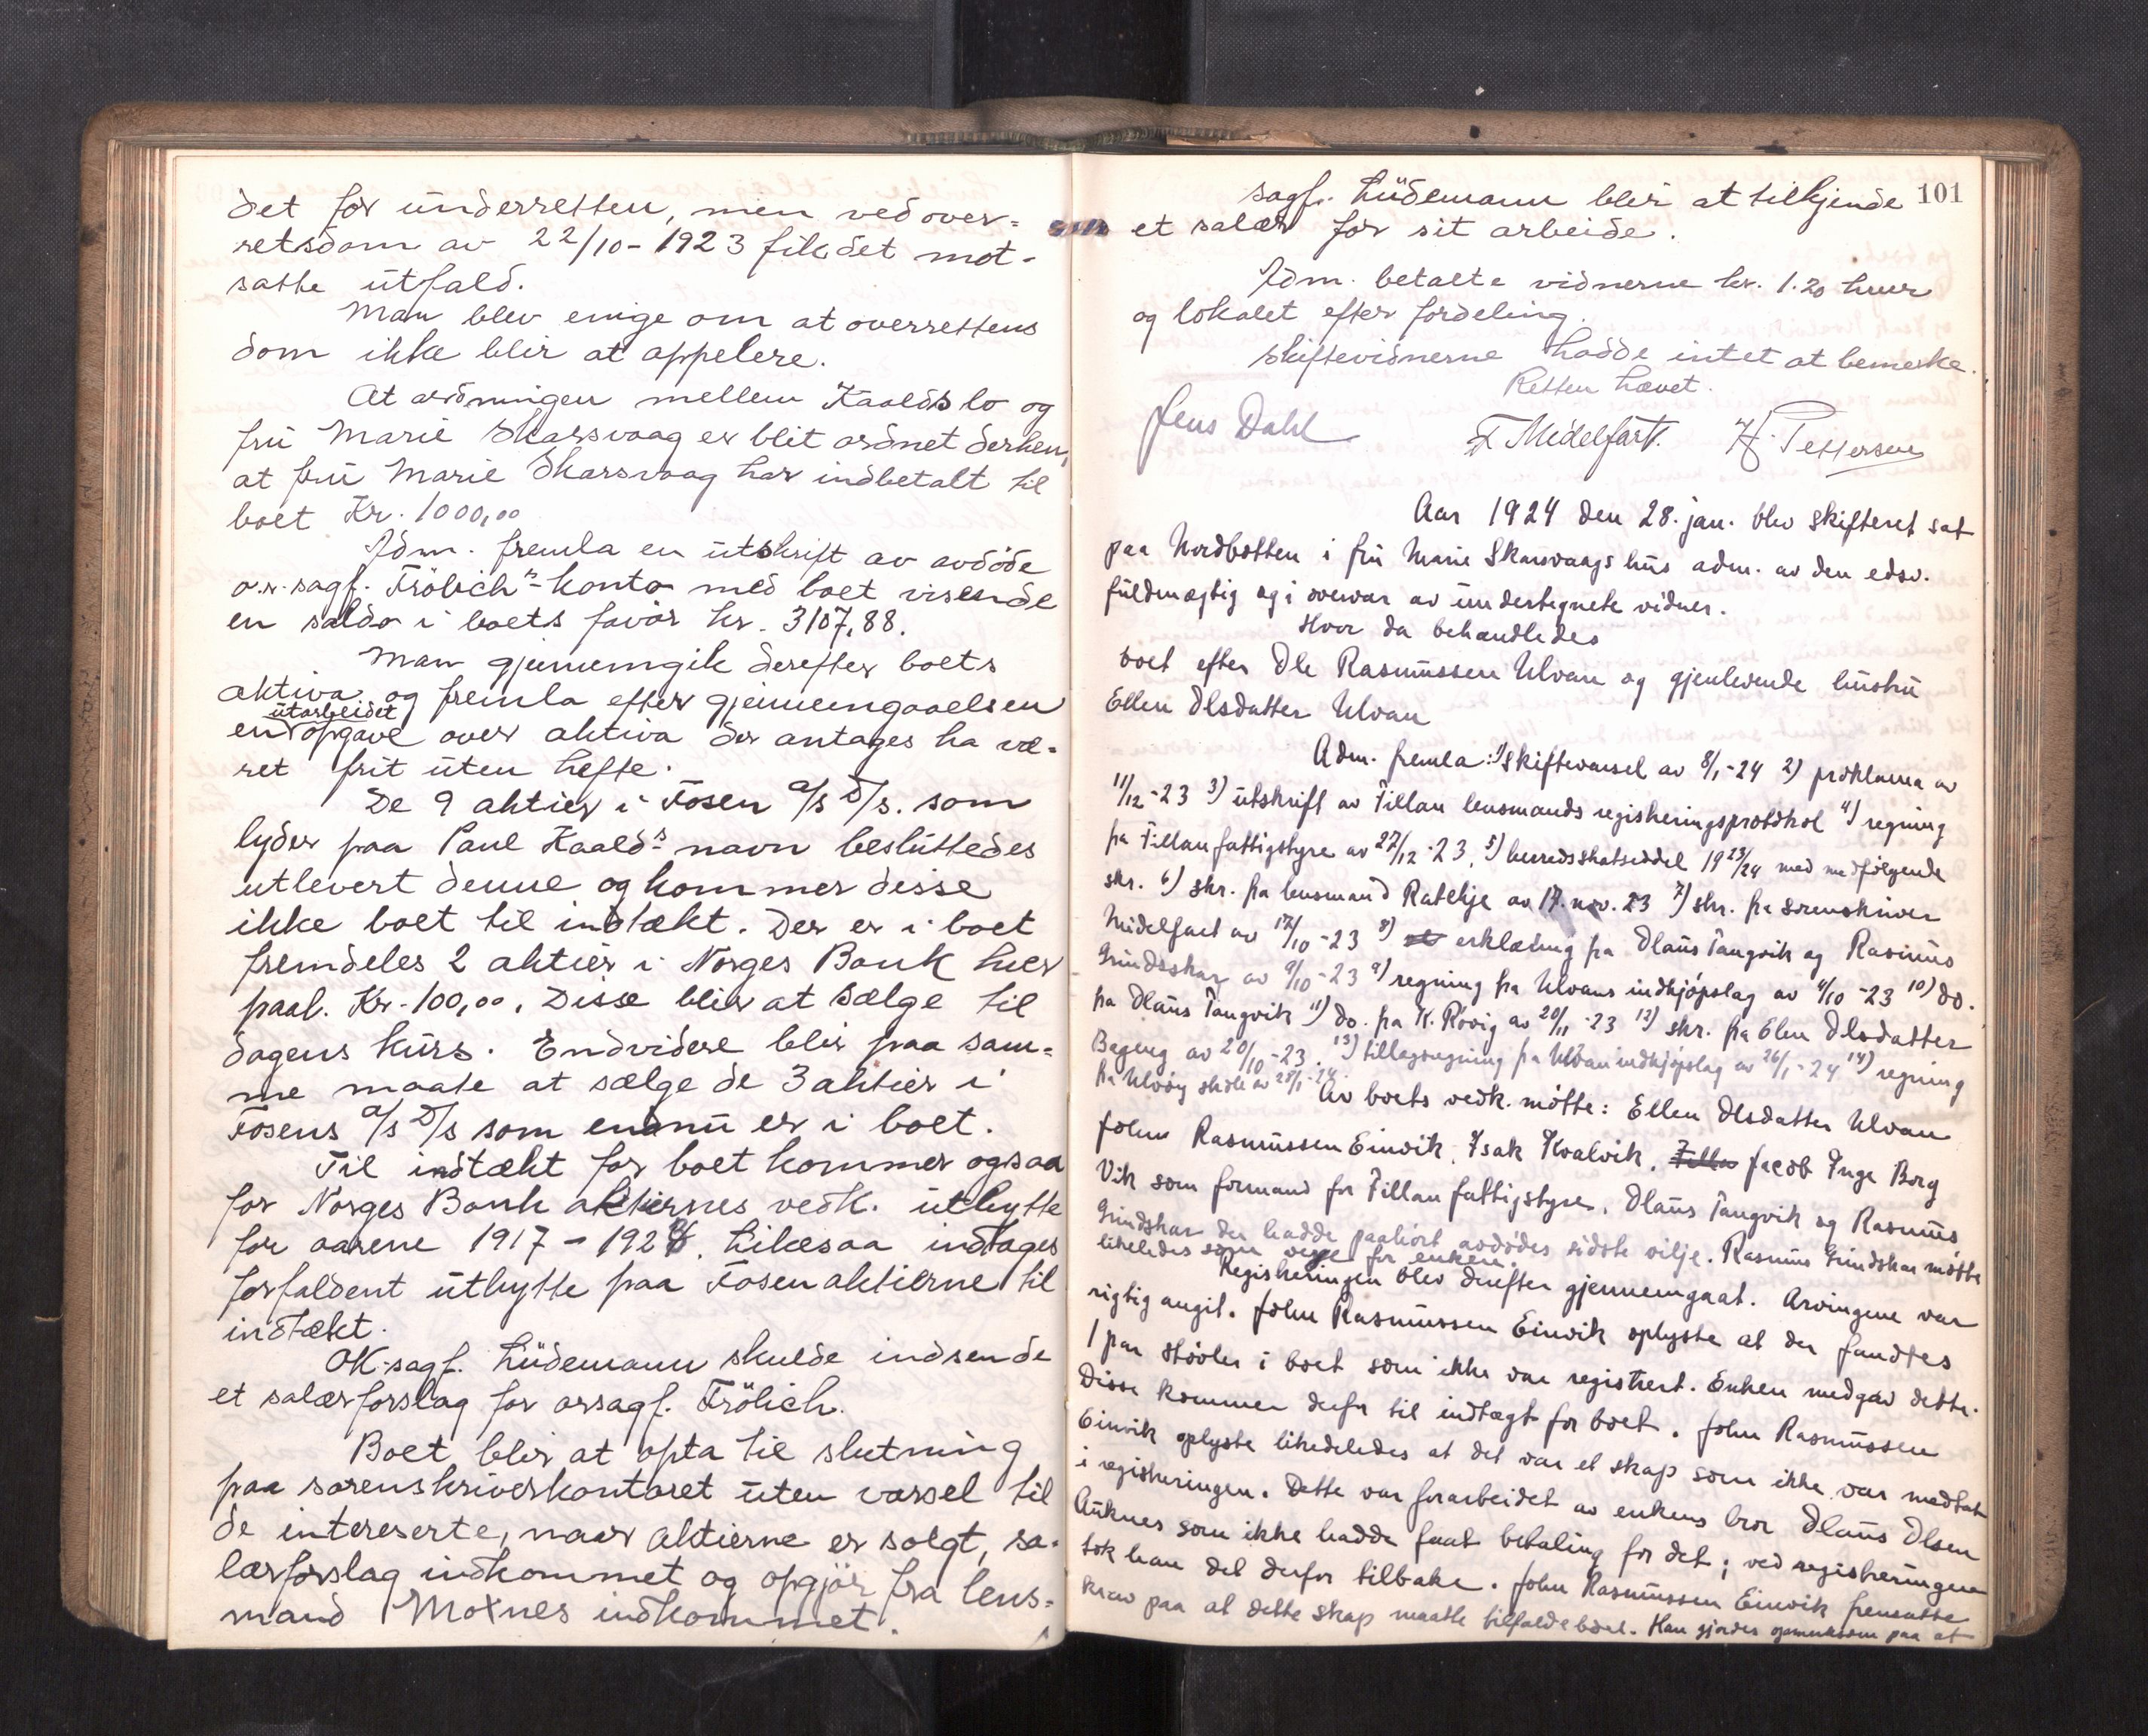 det for underretten, men ved over=
retsdom av 22/10-1923 fik det mot-
satte utfald.
Man blev enige om at overrettens
dom ikke blir at appelere.
At ordningen mellem Kaalds bo og
fru Marie Skarsvaag er blit ordnet derhen,
at fru Marie Skarsvaag har indbetalt til
boet Kr. 1000,00
Adm. fremla en utskrift av avdöde
o.r.sagf. Frölich's konto med boet visende
en saldo i boets favör kr. 3107,88.
Man gjennemgik derefter boets
aktiva og fremla efter gjennemgaaelsen
utarbeidet
en opgave over aktiva der antages ha væ-
ret frit uten hefte.
De 9 aktier i Fosen a/s D/s. som
lyder paa Paul Kaald's navn besluttedes
utlevert denne og kommer disse
ikke boet til indtækt. Der er i boet
fremdeles 2 aktier i Norges Bank hver
paal. Kr. 100,00. Disse blir at sælge til
dagens kurs. Endvidere blir paa sam=
me maate at sælge de 3 aktier i
Fosens a/s D/s som endnu er i boet.
Til indtækt for boet kommer ogsaa
for Norges Bank aktiernes vedk. utbytte
for aarene 1917 - 192. Likesaa indtages
forfaldent utbytte paa Fosenaktierne til
indtækt.
OR-sagf. Lüdemann skulde indsende
et salærforslag for orsagf. Frölich.
Boet blir at opta til slutning
paa sorenskriverkontoret uten varsel til
de intereserte, naar aktierne er solgt, sa-
lærforslag indkommet og opgjör fra lens=
mand Moxnes indkommet.
101
sagf. Lüdemann blir at tilkjende
et salær for sit arbeide.
Adm. betalte vidnerne kr. 1.20 hver
og lokalet efter fordeling.
Skiftevidnerne hadde intet at bemerke.
Retten hævet.
Jens Dahl F Midelfart. H. Pettersen
Aar 1924 den 28. jan. blev skifteret sat
paa Nordbotten i fru Marie Skarsvaags hus adm. av den edsv.
fuldmægtig og i overvær av undertegnete vidner.
Hvor da behandledes
boet efter Ole Rasmussen Ulvan og gjenlevende hustru
Ellen Olsdatter Ulvan
Adm. fremla: 1) Skiftevarsel av 8/1-24 2) proklama av
11/12-23 3) utskrift av Fillan lensmands registreringsprotokol 4) regning
fra Fillan fattigstyre av 27/12-23. 5) herredsskatseddel 1923/24 med medfölgende
skr. 6) skr. fra lensmand Ratekje av 17. nov. 23 7) skr. fra sorenskriver
Midelfart av 12/10-23 8) erklæring fra Olaus Tangvik og Rasmus
Grindskar av 9/10-23 9) regning fra Ulvans indkjöpslag av 4/10-23 10) do.
fra Olaus Tangvik 11) do. fra K. Rövig av 20/11-23 12) skr. fra Elen Olsdatter
av 20/10-23. 13) tillægsregning fra Ulvan indkjöpslag av 26/1-24 14) regning
fra Ulvöy skole av 28/1-24. Av boets vedk. mötte: Ellen Olsdatter Ulvan
John Rasmussen Einvik, Isak Kvalvik, Jacob Inge Borg
Vik som formand for Fillan fattigstyre, Olaus Tangvik og Rasmus
Grindskar der hadde paahört avdödes sidste vilje. Rasmus Grindskar mötte
likeledes som verge for enken.
Registreringen blev derefter gjennemgaat. Arvingene var
rigtig angit. John Rasmussen Einvik oplyste at der fandtes
1 par stövler i boet som ikke var registrert. Enken medgav dette.
Disse kommer derfor til indtægt for boet. John Rasmussen
Einvik oplyste likeledes at det var et skap som ikke var medtat
i registreringen. Dette var forarbeidet av enkens bror Olaus Olsen
Auknes som ikke hadde faat betaling for det; ved registreringen
tok han det derfor tilbake. John Rasmussen Einvik fremsatte
krav paa at dette skap maatte tilfalde boet. Han gjordes opmerksom paa at